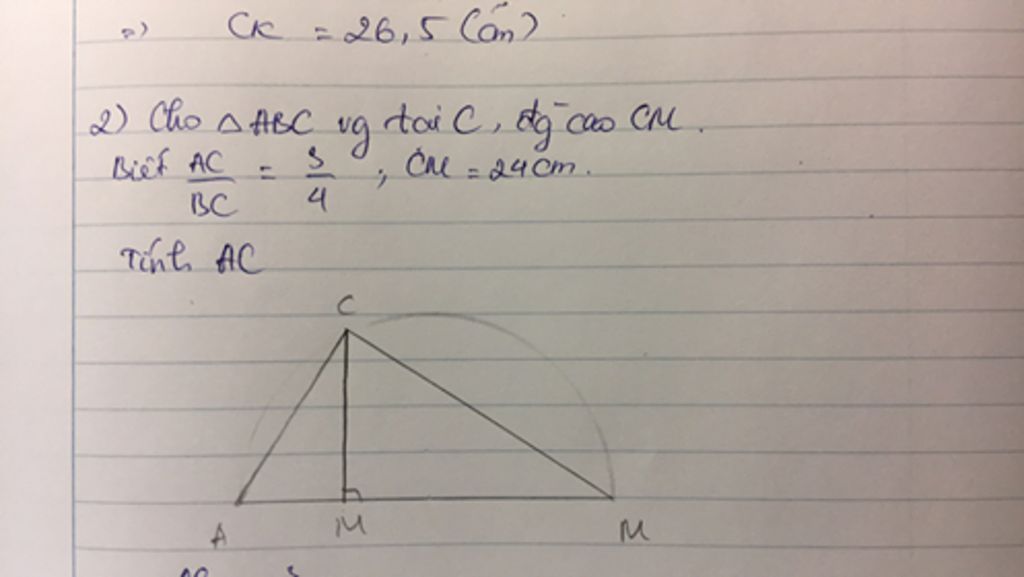 =) CK = 26,5 (cm)
2) Cho △ABC vg tại C, đg cao CM.
Biết AC/BC = 3/4 ; CM = 24cm.
Tính AC
C
A M M